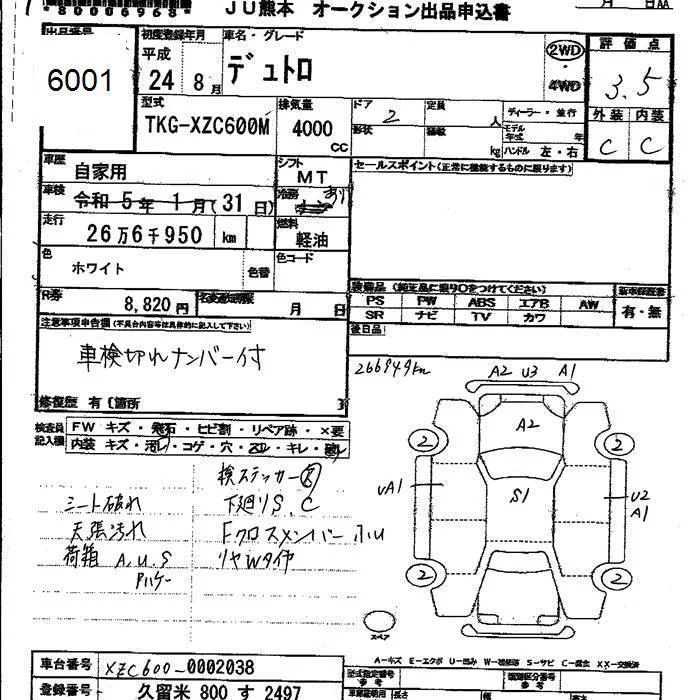 *80006968*
JU熊本 オークション出品申込書
月 日AA
出品番号 初度登録年月 車名・グレード
6001 平成 24 8月 デュトロ 2WD ・ 4WD
評価点 3.5
外装 内装
C C
型式 TKG-XZC600M 排気量 4000 CC
ドア 2 定員 人 ディーラー・並行
形状 積載 kg モデル年式 年
ハンドル 左・右
車歴 自家用 シフト MT
セールスポイント(正常に機能するものに限ります)
車検 令和 5年 1月(31日) 冷房 あり
走行 26万6千950 km 燃料 軽油
色 ホワイト 色替 色コード
装備品(純正品に限り○をつけてください) 新車保証書
PS PW ABS エアB AW 有・無
SR ナビ TV カワ
R券 8,820円 名義変更期限 月 日
後日品
注意事項申告欄(不具合内容等は具体的に記入して下さい)
車検切れナンバー付
修復歴 有〔箇所 〕
266949km
A2 U3 A1
検査員記入欄
FW キズ・飛石・ヒビ割・リペア跡・×要
内装 キズ・汚レ・コゲ・穴・スレ・キレ・破レ
A2
2 2
UA1 S1 U2
A1
2 2
スペア
検ステッカー
シート破れ 下廻りS.C
天張汚れ FクロスメンバーふU
荷箱 A.U.S リヤWタイヤ
Pハケー
A-キズ E-エクボ U-凹み W-補修跡 S-サビ C-腐食 XX-交換済
車台番号 XZC600-0002038
型式指定番号 参考 類別区分番号 参考
登録番号 久留米 800 す 2497
車検証明用 長さ 幅 高さ